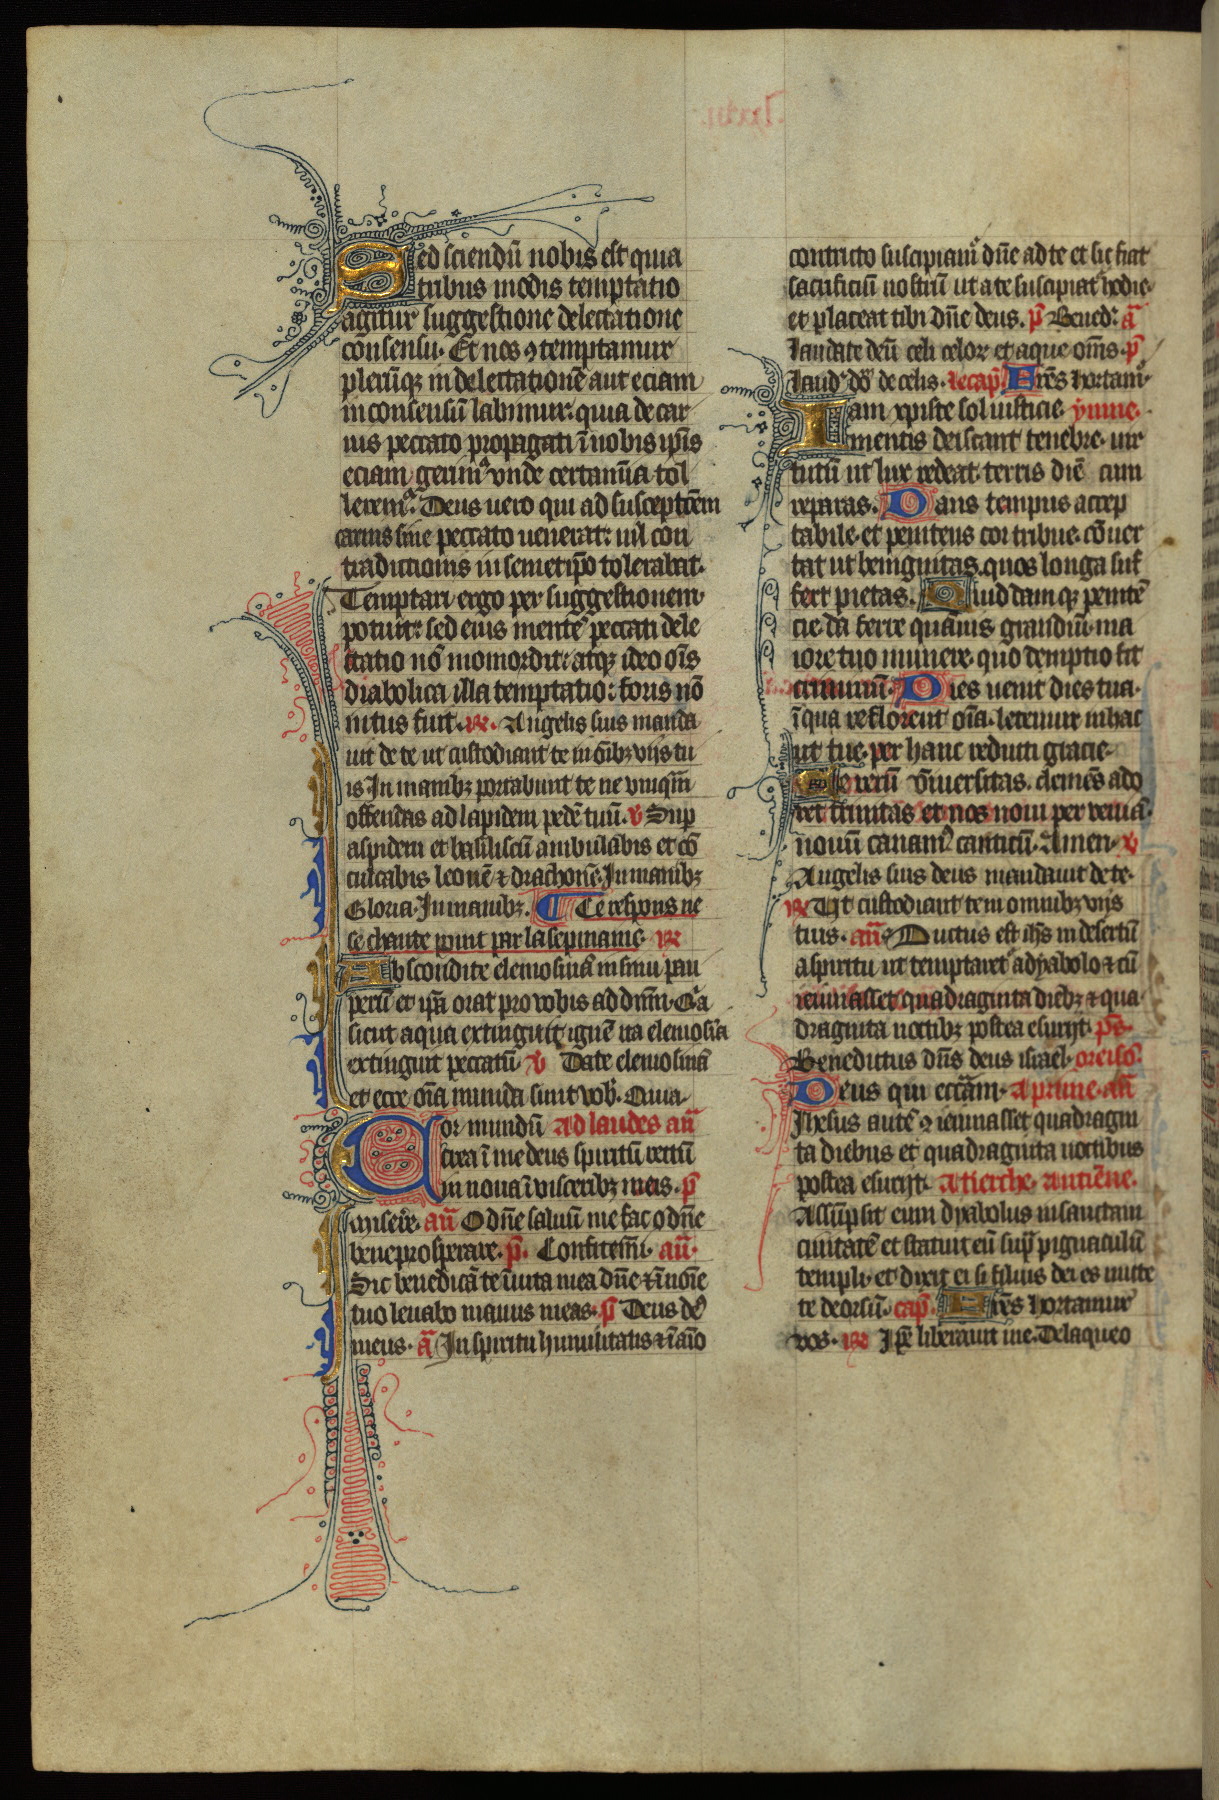 Sed sciendū nobis est quia
tribus modis temptatio
agitur suggestione delectatione
consensu. Et nos ꝯ temptamur
plerūqꝫ in delectationē aut eciam
in consensū labimur: quia de car
nis peccato propagati ī nobis ip̄is
eciam gerimꝰ vnde certamīa tol
leremꝰ. Deus uero qui ad susceptōem
carnis sine peccato uenerat: nil con
tradictionis in semetip̄o tolerabat.
Temptari ergo per suggestionem
potuit: sed eius mentē peccati dele
ctatio nō momordit: atqꝫ ideo oīs
diabolica illa temptatio: foris nō
intus fuit. R. Angelis suis manda
uit de te ut custodiant te in oībꝫ vijs tu
is In manibꝫ portabunt te ne vnqm̄
offendas ad lapidem pedē tuū. V Sup
aspidem et basiliscū ambulabis et cō
culcabis leonē ⁊ drachonē. In manibꝫ
Gloria. In manibꝫ. Ce respons ne
se chante point par la sepmaine. R
Abscondite elemosinā in sinu pau
perū et ip̄a orat pro vobis ad dn̄m. Qa
sicut aqua extinguit ignē ita elemosīa
extinguit peccatū. V Date elemosinā
et ecce oīa munda sunt vob. Quia
Cor mundū Ad laudes añ
crea ī me deus spiritū rectū
in noua ī visceribꝫ meis. p̄
Miserē. añ O dn̄e saluū me fac o dn̄e
bene prosperare. p̄. Confitemī. añ.
Sic benedicā te ī uita mea dn̄e ⁊ ī noīe
tuo leuabo manus meas. p̄ Deus dꝰ
meus. ā In spiritu humilitatis ⁊ ī aīo
contrito suscipiamꝰ dn̄e ad te et sic fiat
sacrificiū nostrū ut a te suscipiatr hodie
et placeat tibi dn̄e deus. p̄ Bened. ā
Laudate deū celi celoꝝ et aque om̄s. p̄
Laud. do. de celis. le cap̄. Frēs hortamr
Iam xpiste sol iusticie. ynne.
mentis dehiscant tenebre. uir
tutū ut lux redeat. terris diē cum
reparas. Dans tempus accep
tabile. et penitens cor tribue. cōuer
tat ut benignitas. quos longa suf
fert pietas. Quiddam qꝫ penitē
cie. da ferre quāuis grandiū. ma
iore tuo munere. quo demptio fit
criminū. Dies uenit dies tua.
ī qua reflorent oīa. letemur in hac
ut tue. per hanc reducti gracie.
Te rerū vniuersitas. clemēs ado
ret trinitas et nos noui per veniā.
nouū canamꝰ canticū. Amen. V
Angelis suis deus mandauit de te.
R Ut custodiant te in omnibꝫ vijs
tuis. añ Ductus est ih̄s in desertū
a spiritu ut temptaretr a dyabolo ⁊ cū
ieiunasset quadraginta diebꝫ ⁊ qua
draginta noctibꝫ postea esurijt. ps̄.
Benedictus dn̄s deus israel. oreiso.
Deus qui eccām. A prime. añ
Jhesus autē ꝯ ieiunasset quadragin
ta diebus et quadraginta noctibus
postea esurijt. A tierche. antiēne.
Assūpsit eum dyabolus in sanctam
ciuitatē et statuit eū sup̄ pignaculū
templi. et dixit ei si filius dei es mitte
te deorsū. cap̄. Frēs hortamur
vos. R Ip̄e liberauit me. De laqueo